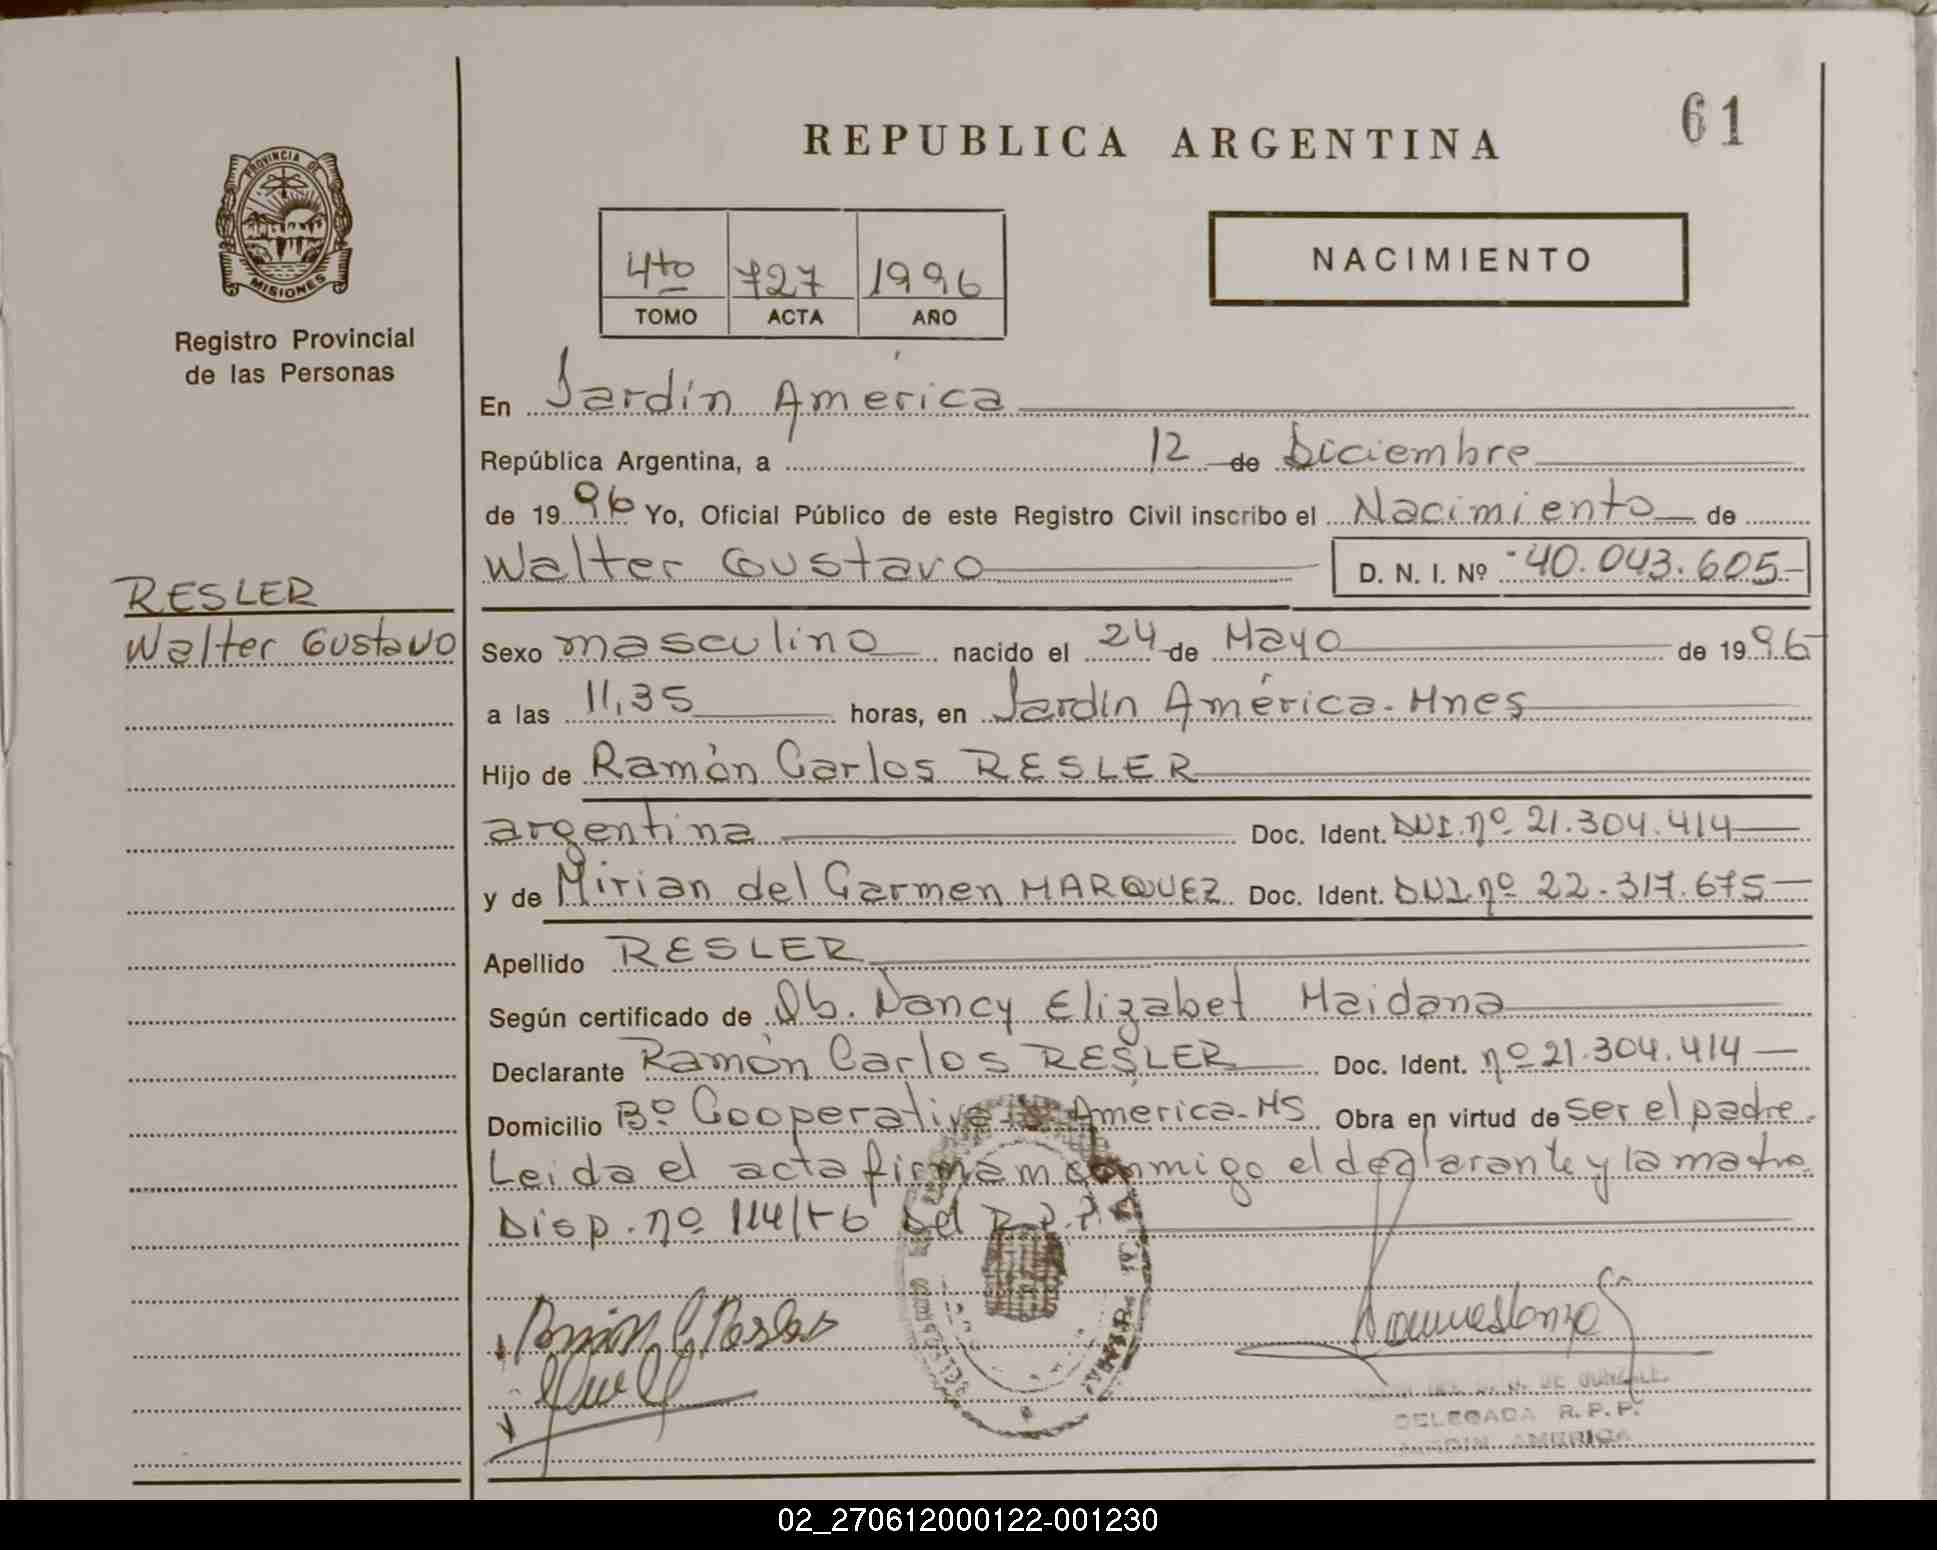 61
REPUBLICA ARGENTINA
PROVINCIA DE
MISIONES
Registro Provincial
de las Personas
4to 727 1996
TOMO ACTA AÑO
NACIMIENTO
En Jardín América
República Argentina, a 12 de Diciembre
de 1996 Yo, Oficial Público de este Registro Civil inscribo el Nacimiento de
Walter Gustavo D. N. I. Nº 40.043.605
RESLER
Walter Gustavo
Sexo masculino nacido el 24 de Mayo de 1996
a las 11,35 horas, en Jardín América - Mnes
Hijo de Ramón Carlos RESLER
argentina Doc. Ident. DNI. nº 21.304.414
y de Mirian del Carmen MARQUEZ Doc. Ident. DNI nº 22.317.675
Apellido RESLER
Según certificado de Ob. Nancy Elizabet Maidana
Declarante Ramón Carlos RESLER Doc. Ident. nº 21.304.414
Domicilio Bº Cooperativa América - MS Obra en virtud de ser el padre.
Leida el acta firmam conmigo el declarante y la madre
Disp. nº 114/ del R.P.P.
DE
DELEGADA R.P.P.
JARDIN AMERICA
02_270612000122-001230